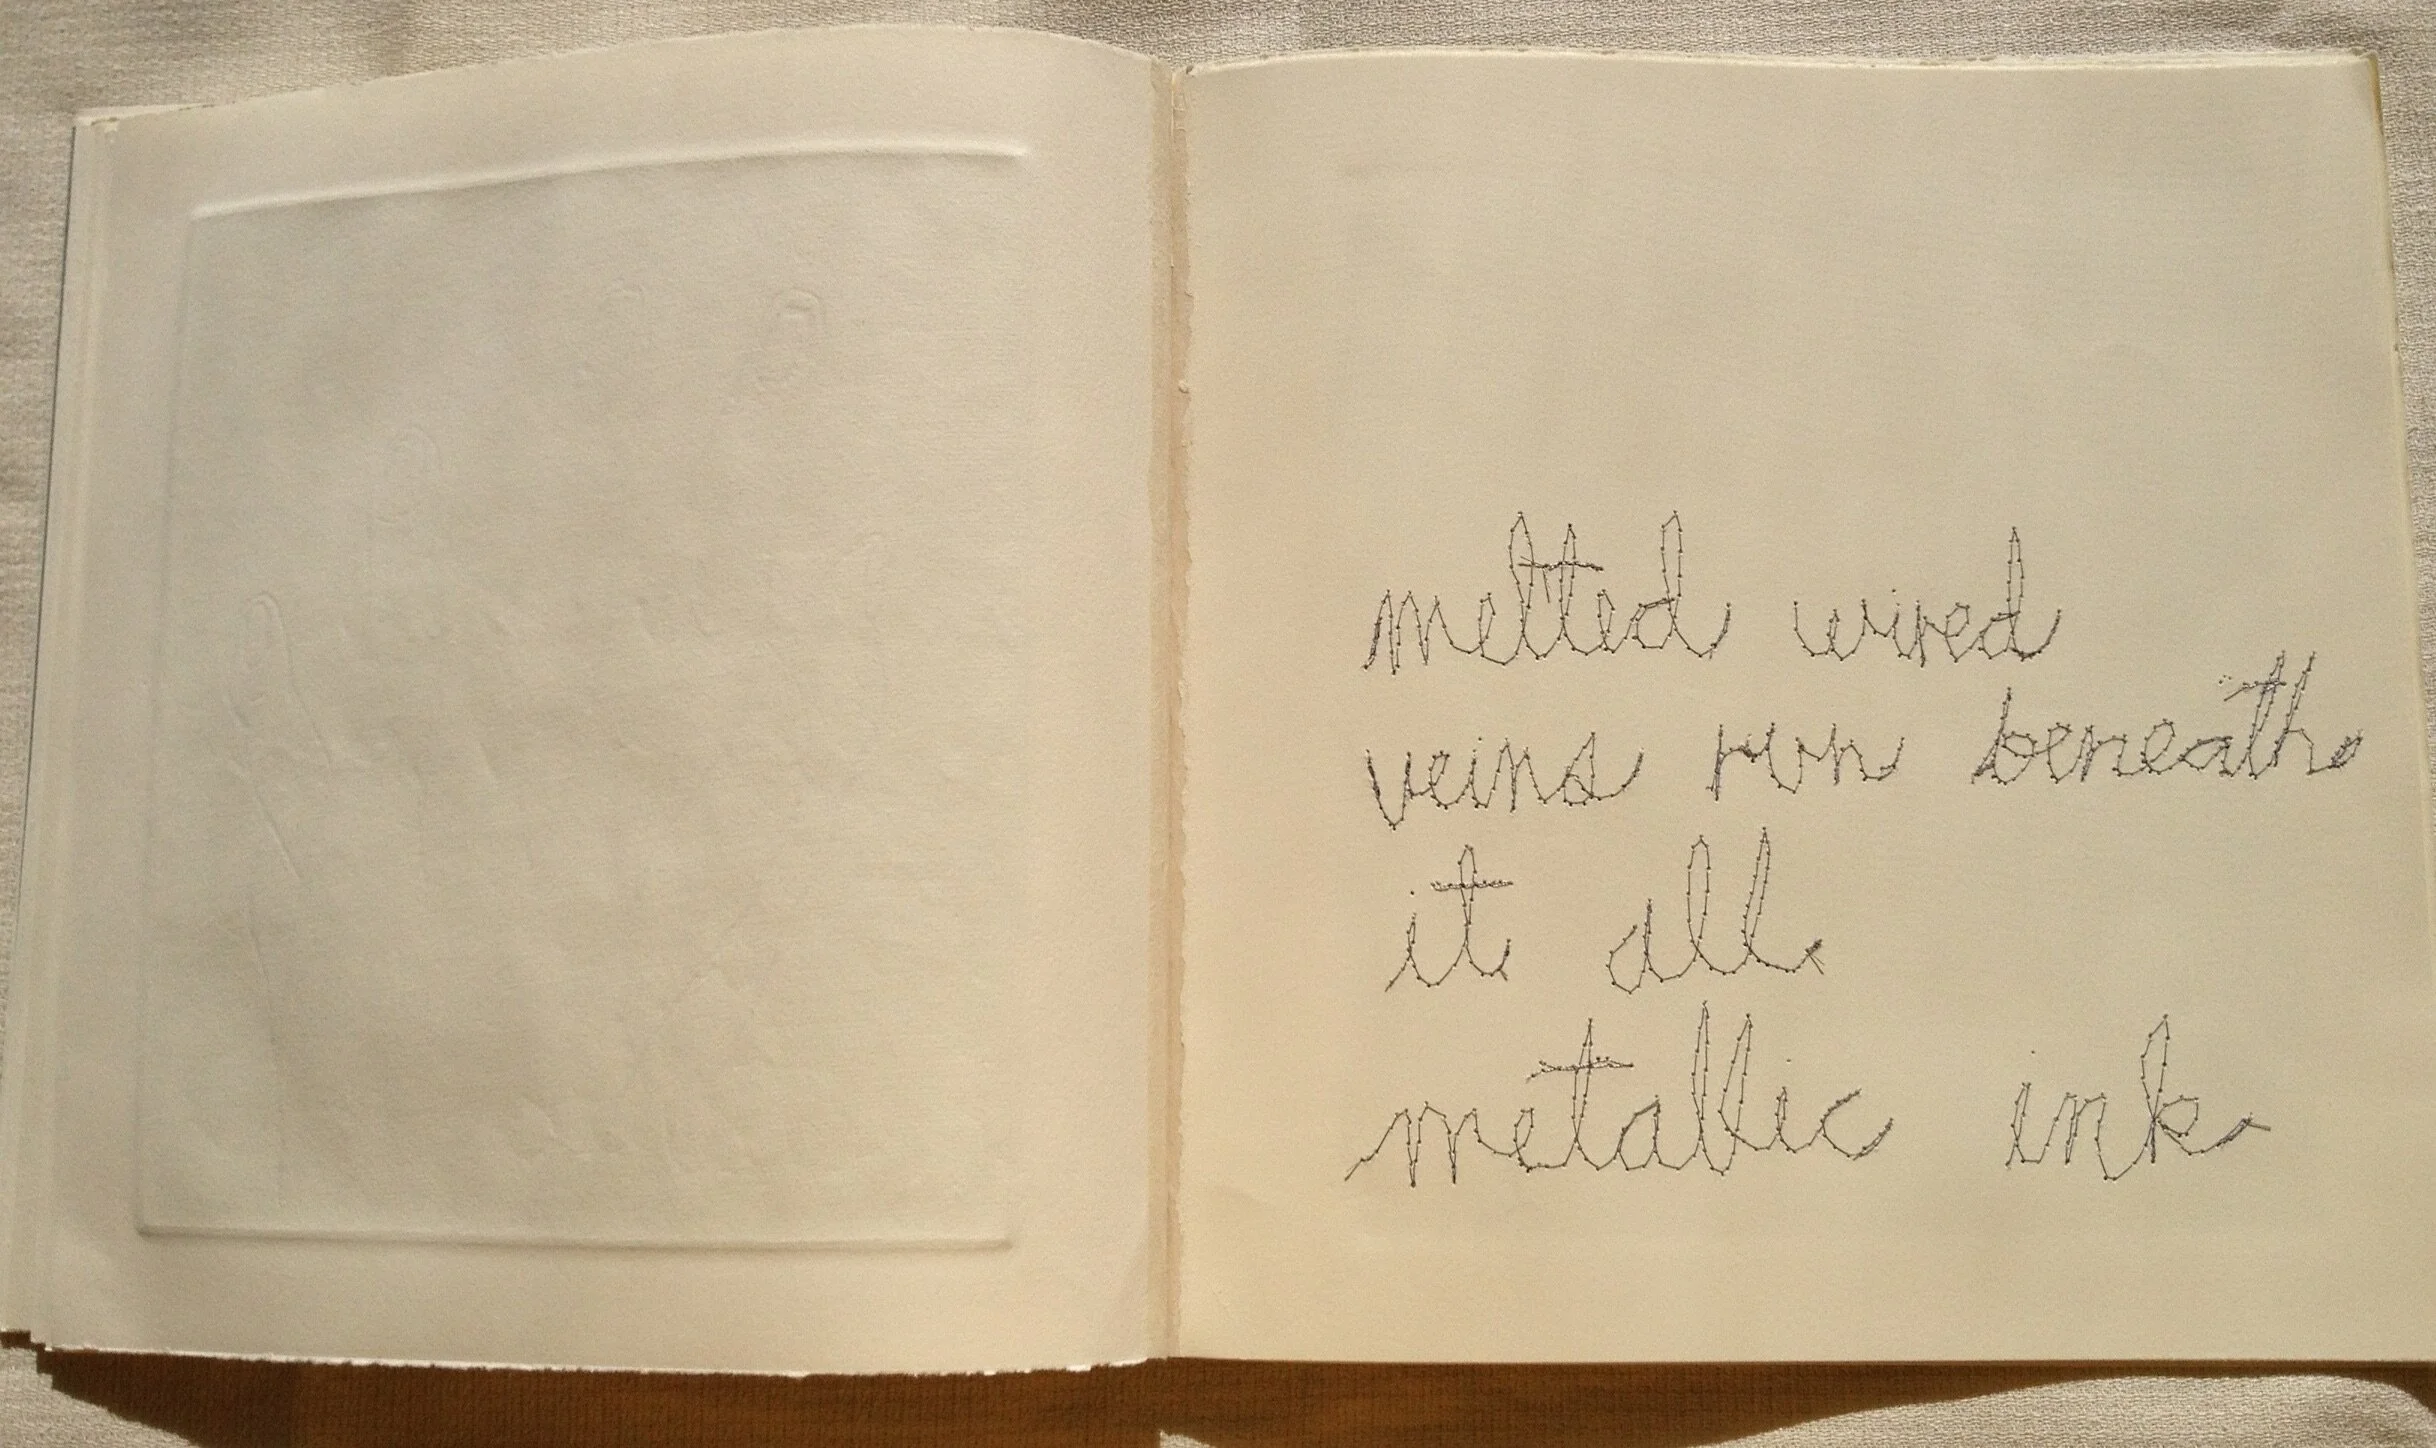 melted wired
veins run beneath
it all
metallic ink